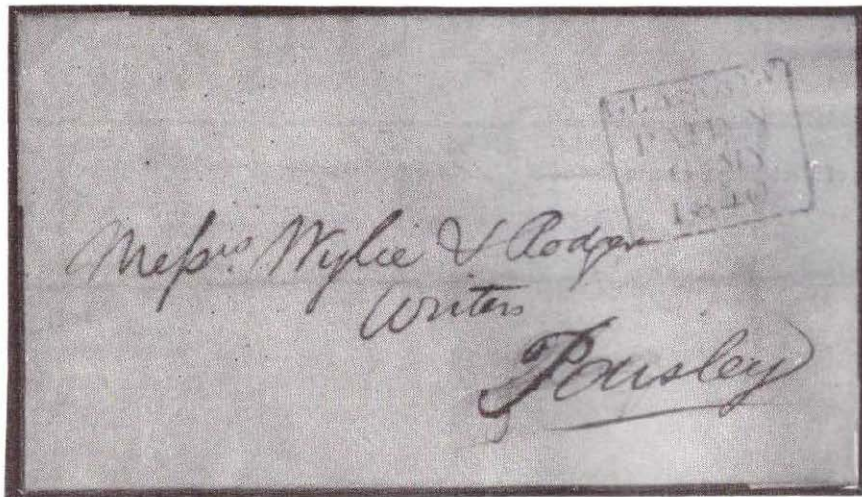 GLASGOW
PAID
MY
1840
Messrs. Wylie & Rodger
Writers
Paisley